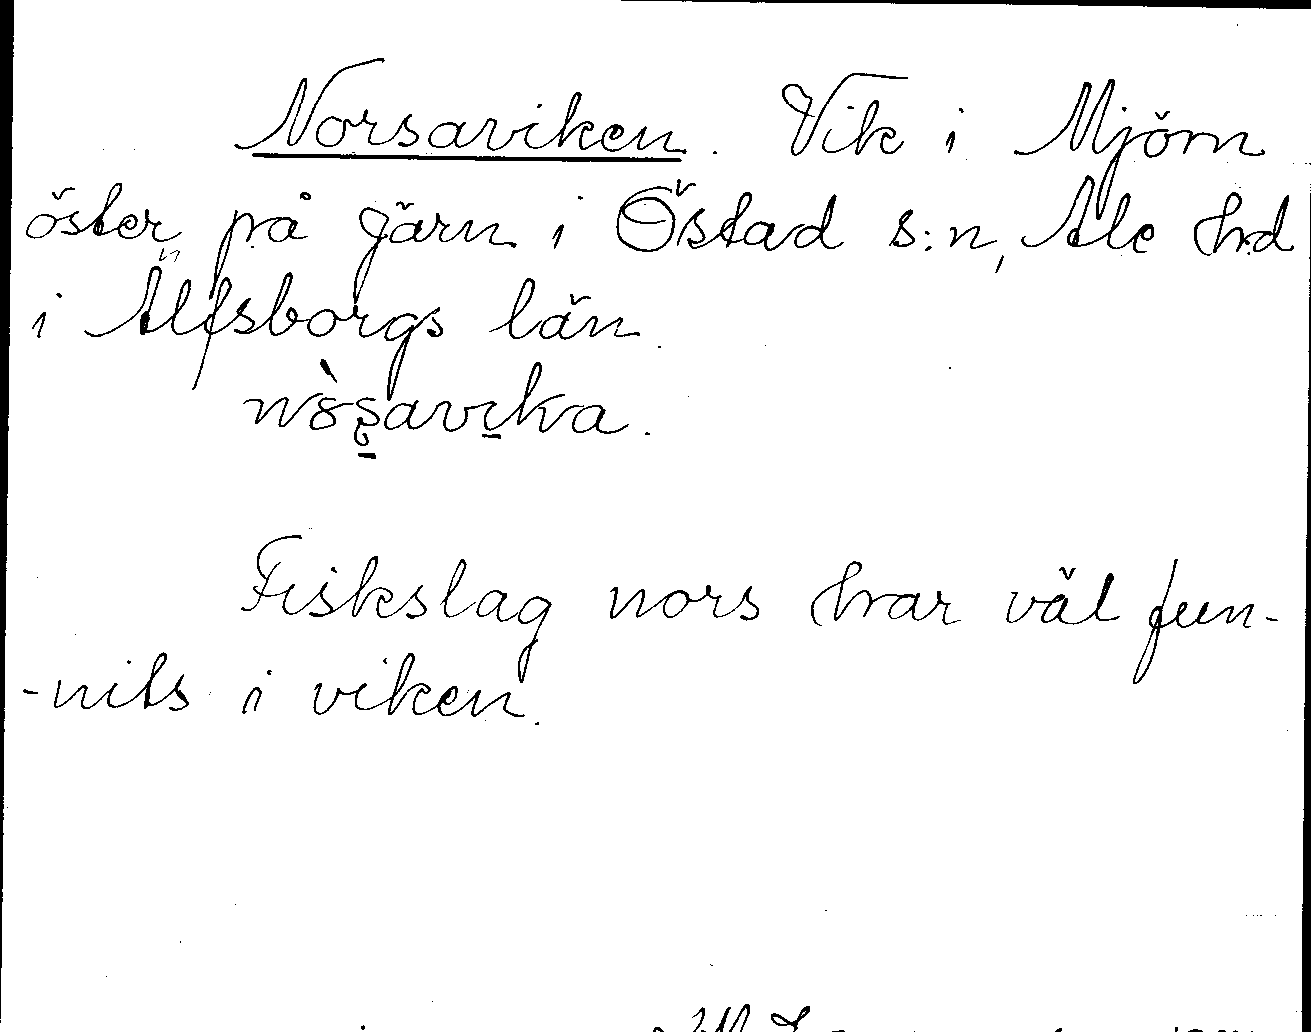 Norsaviken. Vik i Mjörn
öster på Järn i Östad s:n, Ale hd
i Älfsborgs län.
Fiskslag nors har väl fun-
-nits i viken.